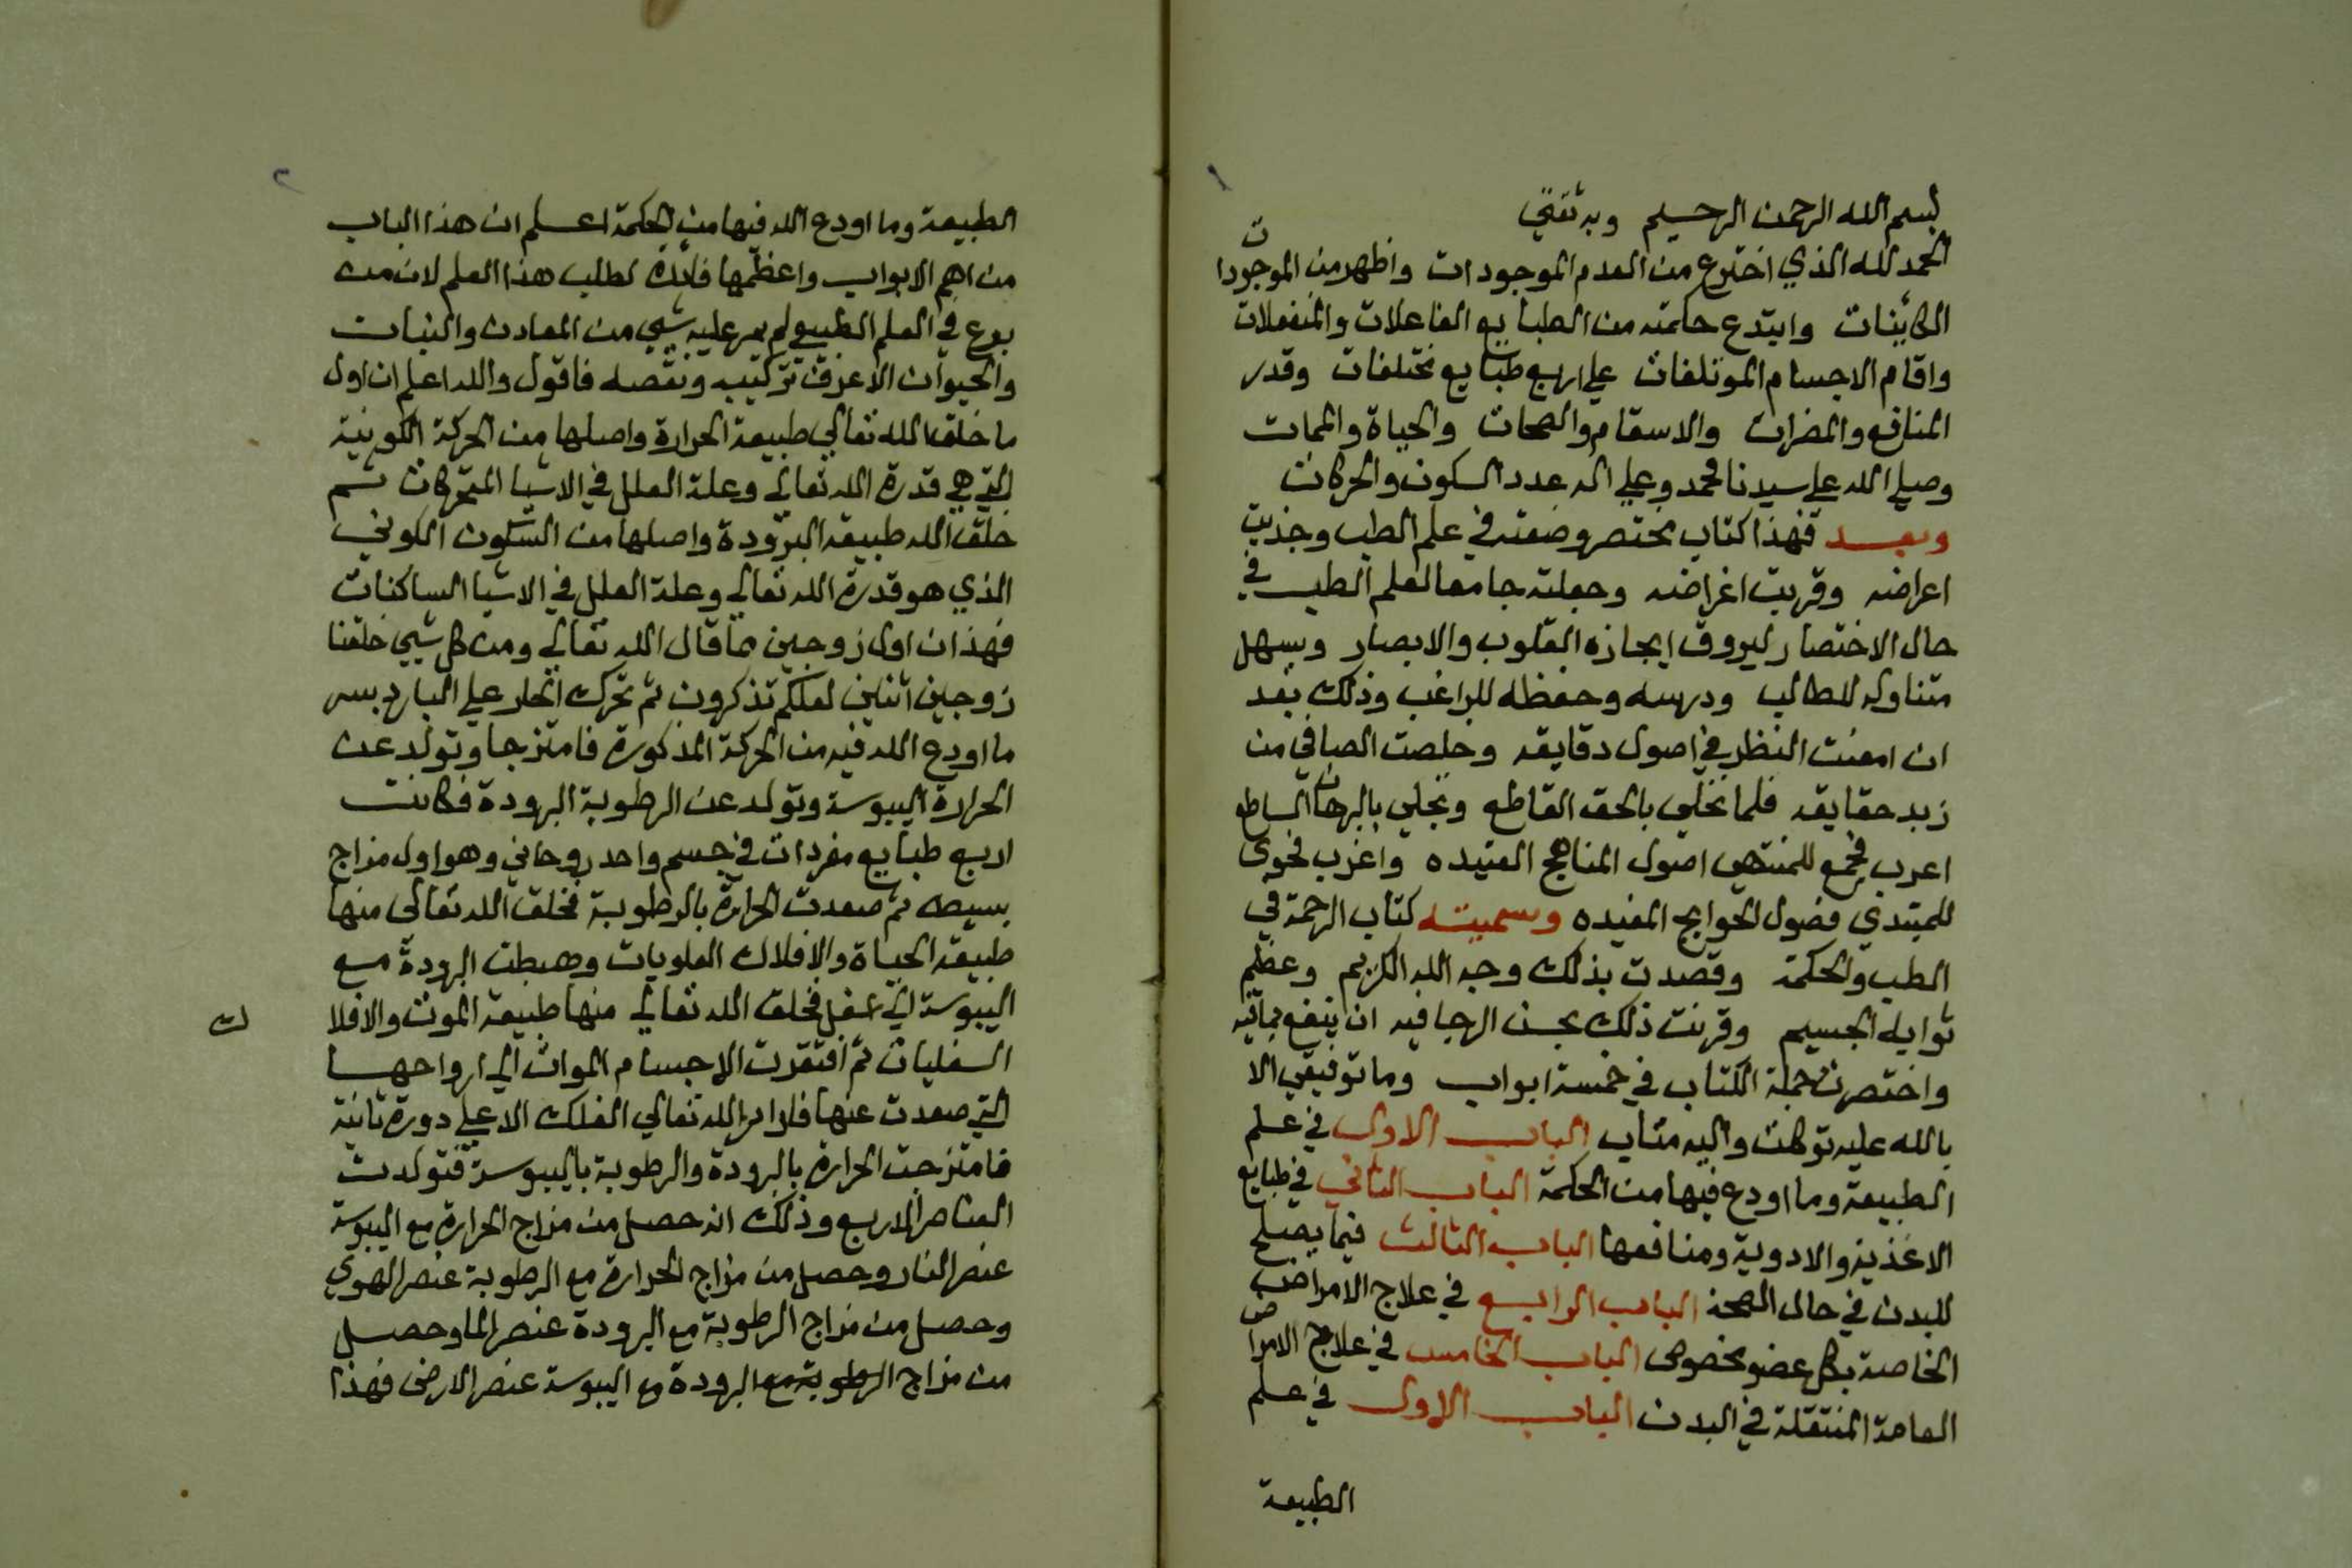 ١
بسم الله الرحمن الرحيم وبه ثقتي
الحمد لله الذي اخترع من العدم الموجودات واظهر من الموجودات
الكاينات وابتدع حكمته من الطبايع الفاعلات والمنفعلات
واقام الاجسام الموتلفات علي اربع طبايع مختلفات وقدر
المنافع والمضرات والاسقام والصحات والحياة والممات
وصلي الله علي سيدنا محمد وعلي اله عدد السكون والحركات
وبعد فهذا كتاب مختصر وضعته في علم الطب وجذبت
اعراضه وقربت اغراضه وجعلته جامعا لعلم الطب في
حال الاختصار ليروق ايجازه القلوب والابصار ويسهل
متناوله للطالب ودرسه وحفظه للراغب وذلك بعد
ان امعنت النظر في اصول دقايقه وخلصت الصافي من
زبد حقايقه فلما تحلي بالحق القاطع وتجلي بالبرهان الساطع
اعرب فجمع للمنتهي اصول المناهج العتيده واغرب فحوى
للمبتدي فضول الحوايج المفيده وسميته كتاب الرحمة في
الطب والحكمة وقصدت بذلك وجه الله الكريم وعظيم
ثوابه الجسيم وقرنت ذلك بحسن الرجا فيه ان ينفع بمافيه
واختصرت جملة الكتاب في خمسة ابواب وما توفيقي الا
بالله عليه توكلت واليه متاب الباب الاول في علم
الطبيعة وما اودع فيها من الحكمة الباب الثاني في طبايع
الاغذية والادوية ومنافعها الباب الثالث فيما يصلح
للبدن في حال الصحة الباب الرابع في علاج الامراض
الخاصة بكل عضو مخصوص الباب الخامس في علاج الامراض
العامة المنتقلة في البدن الباب الاول في علم
الطبيعة
٢
الطبيعة وما اودع الله فيها من الحكمة اعلم ان هذا الباب
من اهم الابواب واعظمها فائدة لطلب هذا العلم لان من
برع في العلم الطبيعي لم يمر عليه شيي من المعادن والنبات
والحيوان الا عرف تركيبه ونقصه فاقول والله اعلم ان اول
ما خلق الله تعالي طبيعة الحرارة واصلها من الحركة الكونية
التي هي قدرة الله تعالي وعلة العلل في الاشيا المتحركات ثم
خلق الله طبيعة البرودة واصلها من السكون الكوني
الذي هو قدرة الله تعالي وعلة العلل في الاشيا الساكنات
فهذان اول زوجين كما قال الله تعالي ومن كل شيي خلقنا
زوجين اثنين لعلكم تذكرون ثم تحرك الحار علي البارد بسر
ما اودع الله فيه من الحركة المذكورة فامتزجا وتولد عن
الحرارة اليبوسة وتولد عن الرطوبة البرودة فكانت
اربع طبايع مفردات في جسم واحد روحاني وهو اول مزاج
بسيط ثم صعدت الحرارة بالرطوبة فخلق الله تعالى منها
طبيعة الحياة والافلاك العلويات وهبطت البرودة مع
اليبوسة الي اسفل فخلق الله تعالي منها طبيعة الموت والافلاك
السفليات ثم افتقرت الاجسام الموات الي ارواحها
التي صعدت عنها فادار الله تعالي الفلك الاعلي دورة ثانية
فامتزجت الحرارة بالبرودة والرطوبة باليبوسة فتولدت
العناصر الاربع وذلك انه حصل من مزاج الحرارة مع اليبوسة
عنصر النار وحصل من مزاج الحرارة مع الرطوبة عنصر الهوي
وحصل من مزاج الرطوبة مع البرودة عنصر الما وحصل
من مزاج الرطوبة مع البرودة مع اليبوسة عنصر الارض فهذا